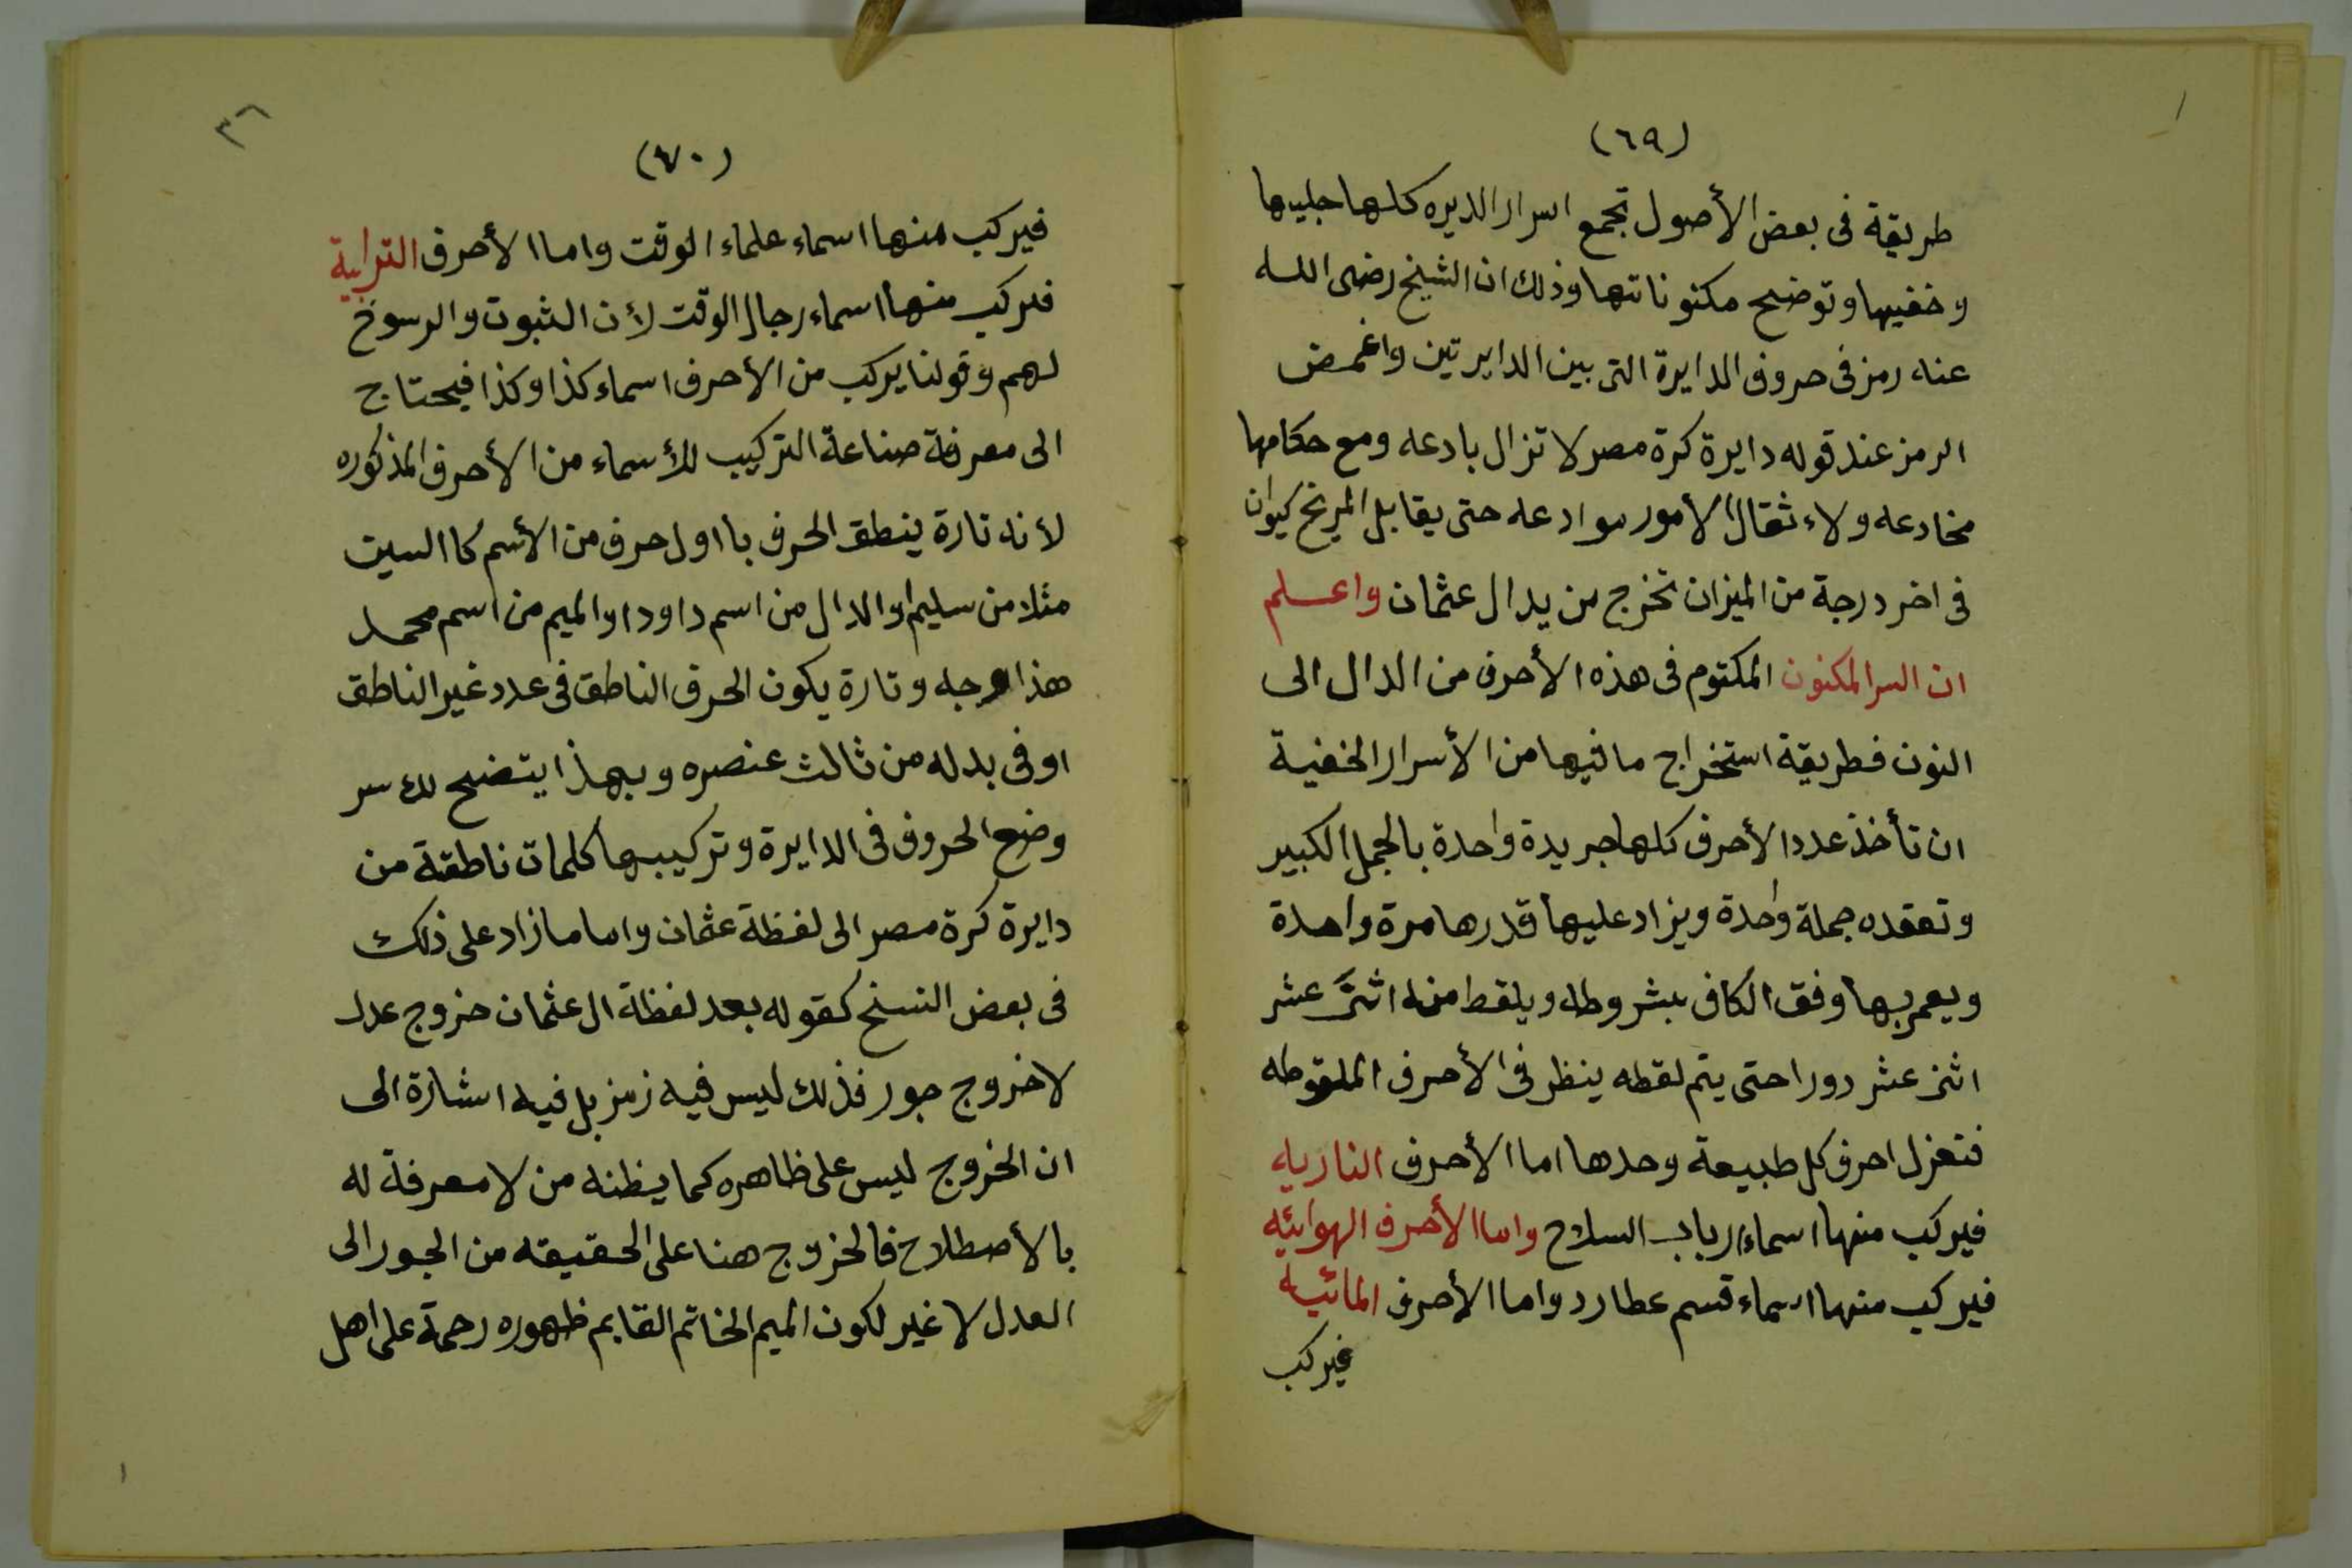 (٦٩)
طريقة فى بعض الأصول تجمع اسرار الديره كلها جليها
وخفيها وتوضح مكنوناتها وذلك ان الشيخ رضى الله
عنه رمز فى حروف الدايرة التى بين الدايرتين واغمض
الرمز عند قوله دايرة كرة مصر لا تزال بادعه ومع حكامها
مخادعه ولاء ثقال الأمور موادعه حتى يقابل المريخ كيوان
فى اخر درجة من الميزان تخرج من يد ال عثمان واعلم
ان السر المكنون المكتوم فى هذه الأحرف من الدال الى
النون فطريقة استخراج ما فيها من الأسرار الخفية
ان تأخذ عدد الأحرف كلها جريدة واحدة بالجمل الكبير
وتعقده جملة واحدة ويزاد عليها قدرها مرة واحدة
ويعمر بها وفق الكاف بشروطه ويلقط منه اثنى عشر
اثنى عشر دورا حتى يتم لقطه ينظر فى الأحرف الملقوطه
فتعزل احرف كل طبيعة وحدها اما الأحرف الناريه
فيركب منها اسماء ارباب السلاح واما الأحرف الهوائيه
فيركب منها اسماء قسم عطارد واما الأحرف المائيه
فيركب
٣٦
(٧٠)
فيركب منها اسماء علماء الوقت واما الأحرف الترابية
فيركب منها اسماء رجال الوقت لأن الثبوت والرسوخ
لهم وقولنا يركب من الأحرف اسماء كذا وكذا فيحتاج
الى معرفة صناعة التركيب للأسماء من الأحرف المذكوره
لأنه تارة ينطق الحرف با اول حرف من الأسم كا السين
مثلا من سليم او الدال من اسم داود او الميم من اسم محمد
هذا وجه وتارة يكون الحرف الناطق فى عدد غير الناطق
او فى بدله من ثالث عنصره وبهذا يتضح لك سر
وضع الحروف فى الدايرة وتركيبها كلمات ناطقة من
دايرة كرة مصر الى لفظة عثمان واما ما زاد على ذلك
فى بعض النسخ كقوله بعد لفظة ال عثمان خروج عدل
لا خروج جور فذلك ليس فيه رمز بل فيه اشارة الى
ان الخروج ليس على ظاهره كما يظنه من لا معرفة له
بالأصطلاح فالخروج هنا على الحقيقه من الجور الى
العدل لا غير لكون الميم الخاتم القايم ظهوره رحمة على اهل